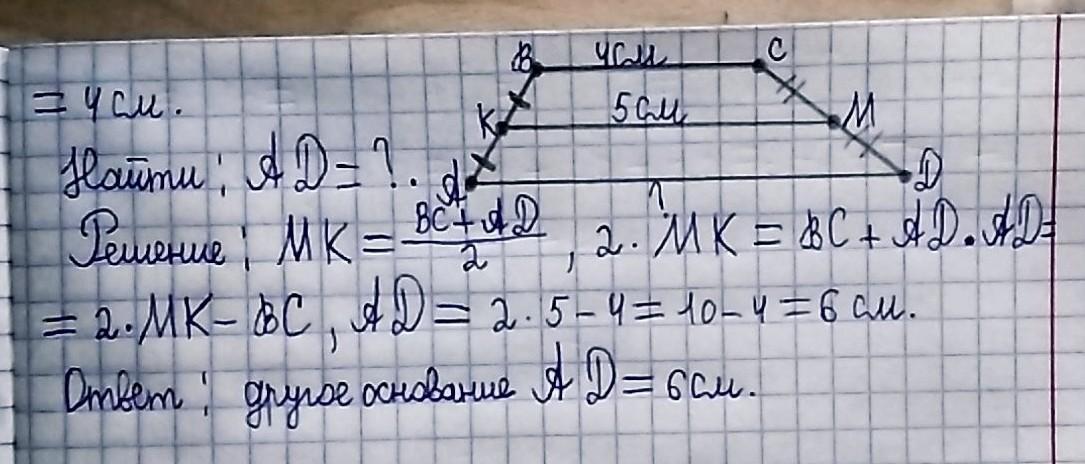 B 4см C
= 4 см.
K 5 см M
Найти: AD = ?.
A ? D
Решение: MK = BC + AD / 2, 2 · MK = BC + AD. AD =
= 2 · MK - BC, AD = 2 · 5 - 4 = 10 - 4 = 6 см.
Ответ: другое основание AD = 6 см.